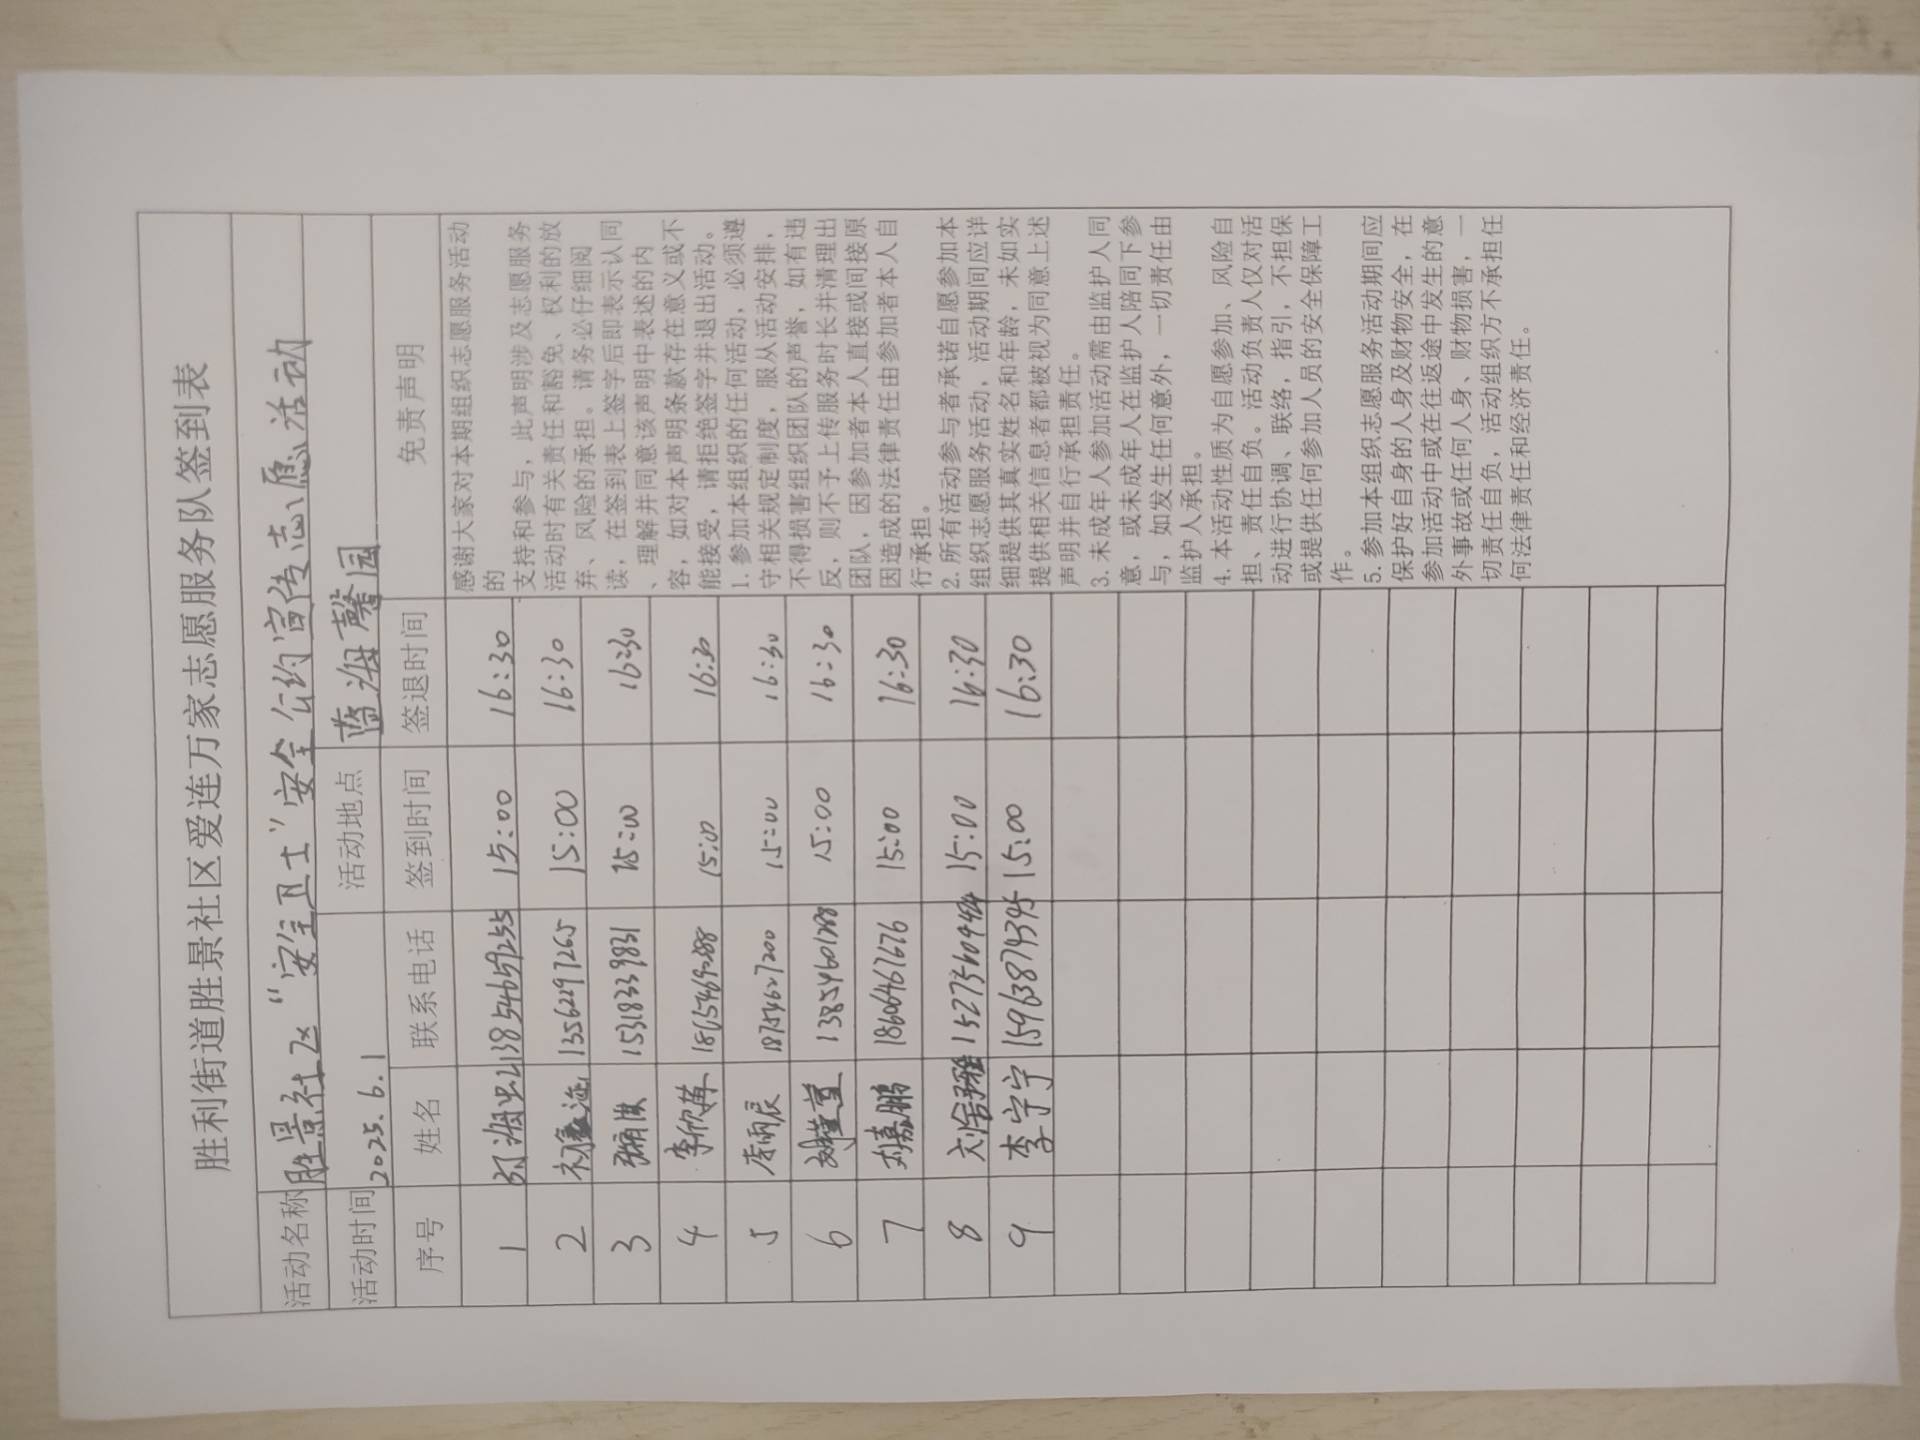 胜利街道胜景社区爱连万家志愿服务队签到表
活动名称 胜景社区“安全卫士”安全公约宣传志愿活动
活动时间 2025.6.1 活动地点 蓝海馨园
序号 姓名 联系电话 签到时间 签退时间 免责声明
1 13854659255 15:00 16:30
2 13562297265 15:00 16:30
3 15318339831 15:00 16:30
4 李欣苒 18654692888 15:00 16:30
5 唐雨辰 18754627200 15:00 16:30
6 13854601288 15:00 16:30
7 刘嘉鹏 18606467676 15:00 16:30
8 15:00 16:30
9 李宁宁 15963874395 15:00 16:30
感谢大家对本期组织志愿服务活动
的
支持和参与，此声明涉及志愿服务
活动时有关责任和豁免、权利的放
弃、风险的承担。请务必仔细阅
读，在签到表上签字后即表示认同
、理解并同意该声明中表述的内
容，如对本声明条款存在意义或不
能接受，请拒绝签字并退出活动。
1.参加本组织的任何活动，必须遵
守相关规定制度，服从活动安排，
不得损害组织团队的声誉，如有违
反，则不予上传服务时长并清理出
团队，因参加者本人直接或间接原
因造成的法律责任由参加者本人自
行承担。
2.所有活动参与者承诺自愿参加本
组织志愿服务活动，活动期间应详
细提供其真实姓名和年龄，未如实
提供相关信息者都被视为同意上述
声明并自行承担责任。
3.未成年人参加活动需由监护人同
意，或未成年人在监护人陪同下参
与，如发生任何意外，一切责任由
监护人承担。
4.本活动性质为自愿参加、风险自
担、责任自负。活动负责人仅对活
动进行协调、联络，指引，不担保
或提供任何参加人员的安全保障工
作。
5.参加本组织志愿服务活动期间应
保护好自身的人身及财物安全，在
参加活动中或在往返途中发生的意
外事故或任何人身、财物损害，一
切责任自负，活动组织方不承担任
何法律责任和经济责任。